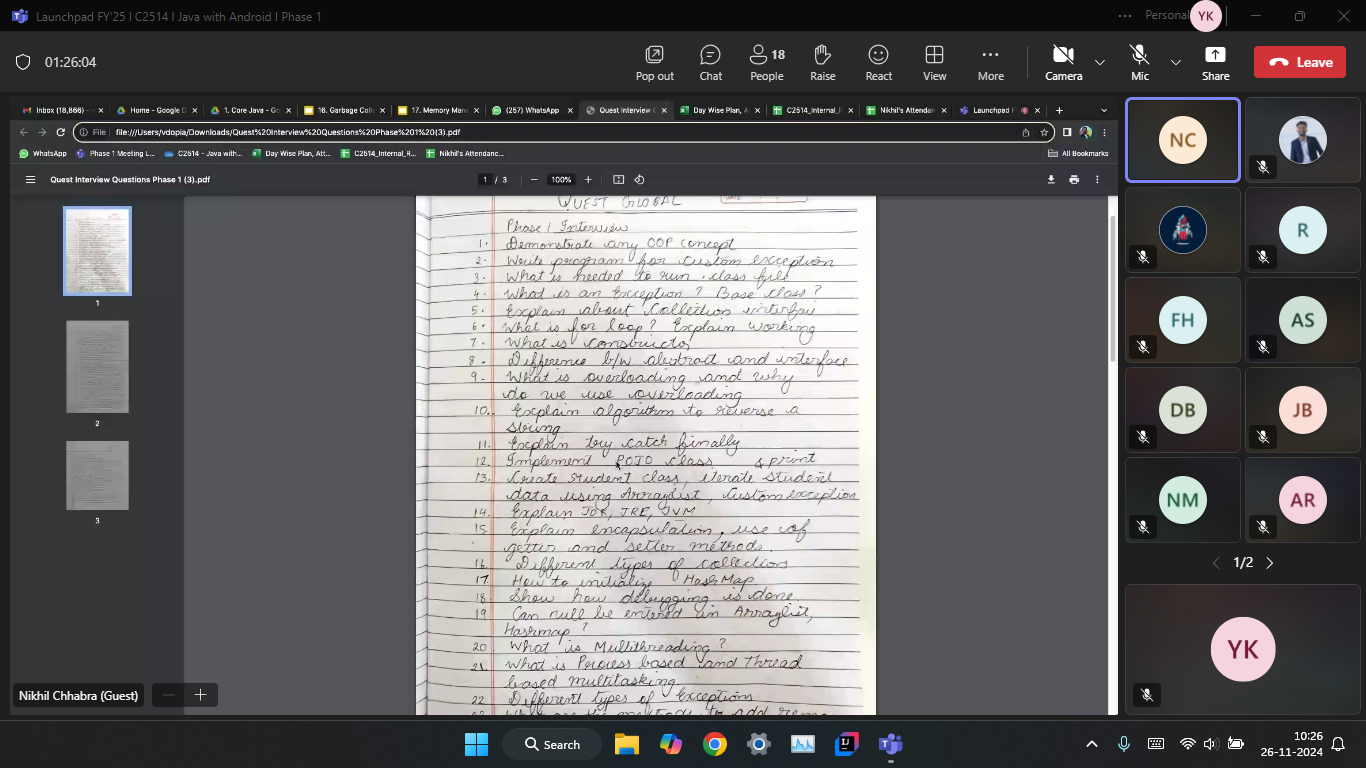 Launchpad FY'25 | C2514 | Java with Android | Phase 1
Personal
YK
01:26:04
Pop out
Chat
18
People
Raise
React
View
More
Camera
Mic
Share
Leave
Inbox (18,866) -
Home - Google D
1. Core Java - Go
16. Garbage Coll
17. Memory Man
(257) WhatsApp
Quest Interview C
Day Wise Plan, A
C2514_Internal_F
Nikhil's Attendan
Launchpad F
File
file:///Users/vdopia/Downloads/Quest%20Interview%20Questions%20Phase%201%20(3).pdf
WhatsApp
Phase 1 Meeting L...
C2514 - Java with...
Day Wise Plan, Att...
C2514_Internal_R...
Nikhil's Attendanc...
All Bookmarks
Quest Interview Questions Phase 1 (3).pdf
1 / 3
100%
1
2
3
QUEST GLOBAL
Phase 1 Interview
1. Demonstrate any OOP concept
2. Write program for custom exception
3. What is needed to run .class file
4. What is an Exception? Base class?
5. Explain about Collection interfay
6. What is for loop? Explain working
7. What is constructor
8. Difference b/w abstract and interface
9. What is overloading and why
do we use overloading
10. Explain algorithm to reverse a
string
11. Explain try catch finally
12. Implement POJO class & print
13. Create student class, iterate student
data using Arraylist, custom exception
14. Explain JDK, JRE, JVM
15. Explain encapsulation, use of
getter and setter methods.
16. Different types of collection
17. How to initialize HashMap
18. Show how debugging is done.
19 Can null be entered in Arraylist,
Hashmap?
20 What is Multithreading?
21. What is Process based and thread
based multitasking.
22 Different types of Exceptions
to add
Nikhil Chhabra (Guest)
NC
R
FH
AS
DB
JB
NM
AR
1/2
YK
Search
10:26
26-11-2024